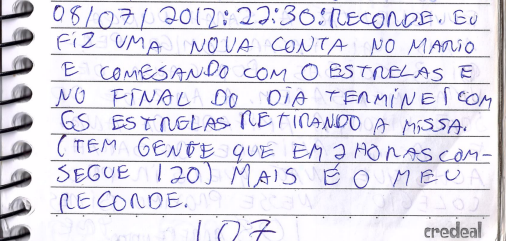 08/07/2012:22:36:RECORDE. EU
FIZ UMA NOVA CONTA NO MARIO
E COMESANDO COM 0 ESTRELAS E
NO FINAL DO DIA TERMINEI COM
65 ESTRELAS RETIRANDO A MISSA.
(TEM GENTE QUE EM 2 HORAS COM-
SEGUE 120) MAIS É O MEU
RECORDE.
107
credeal